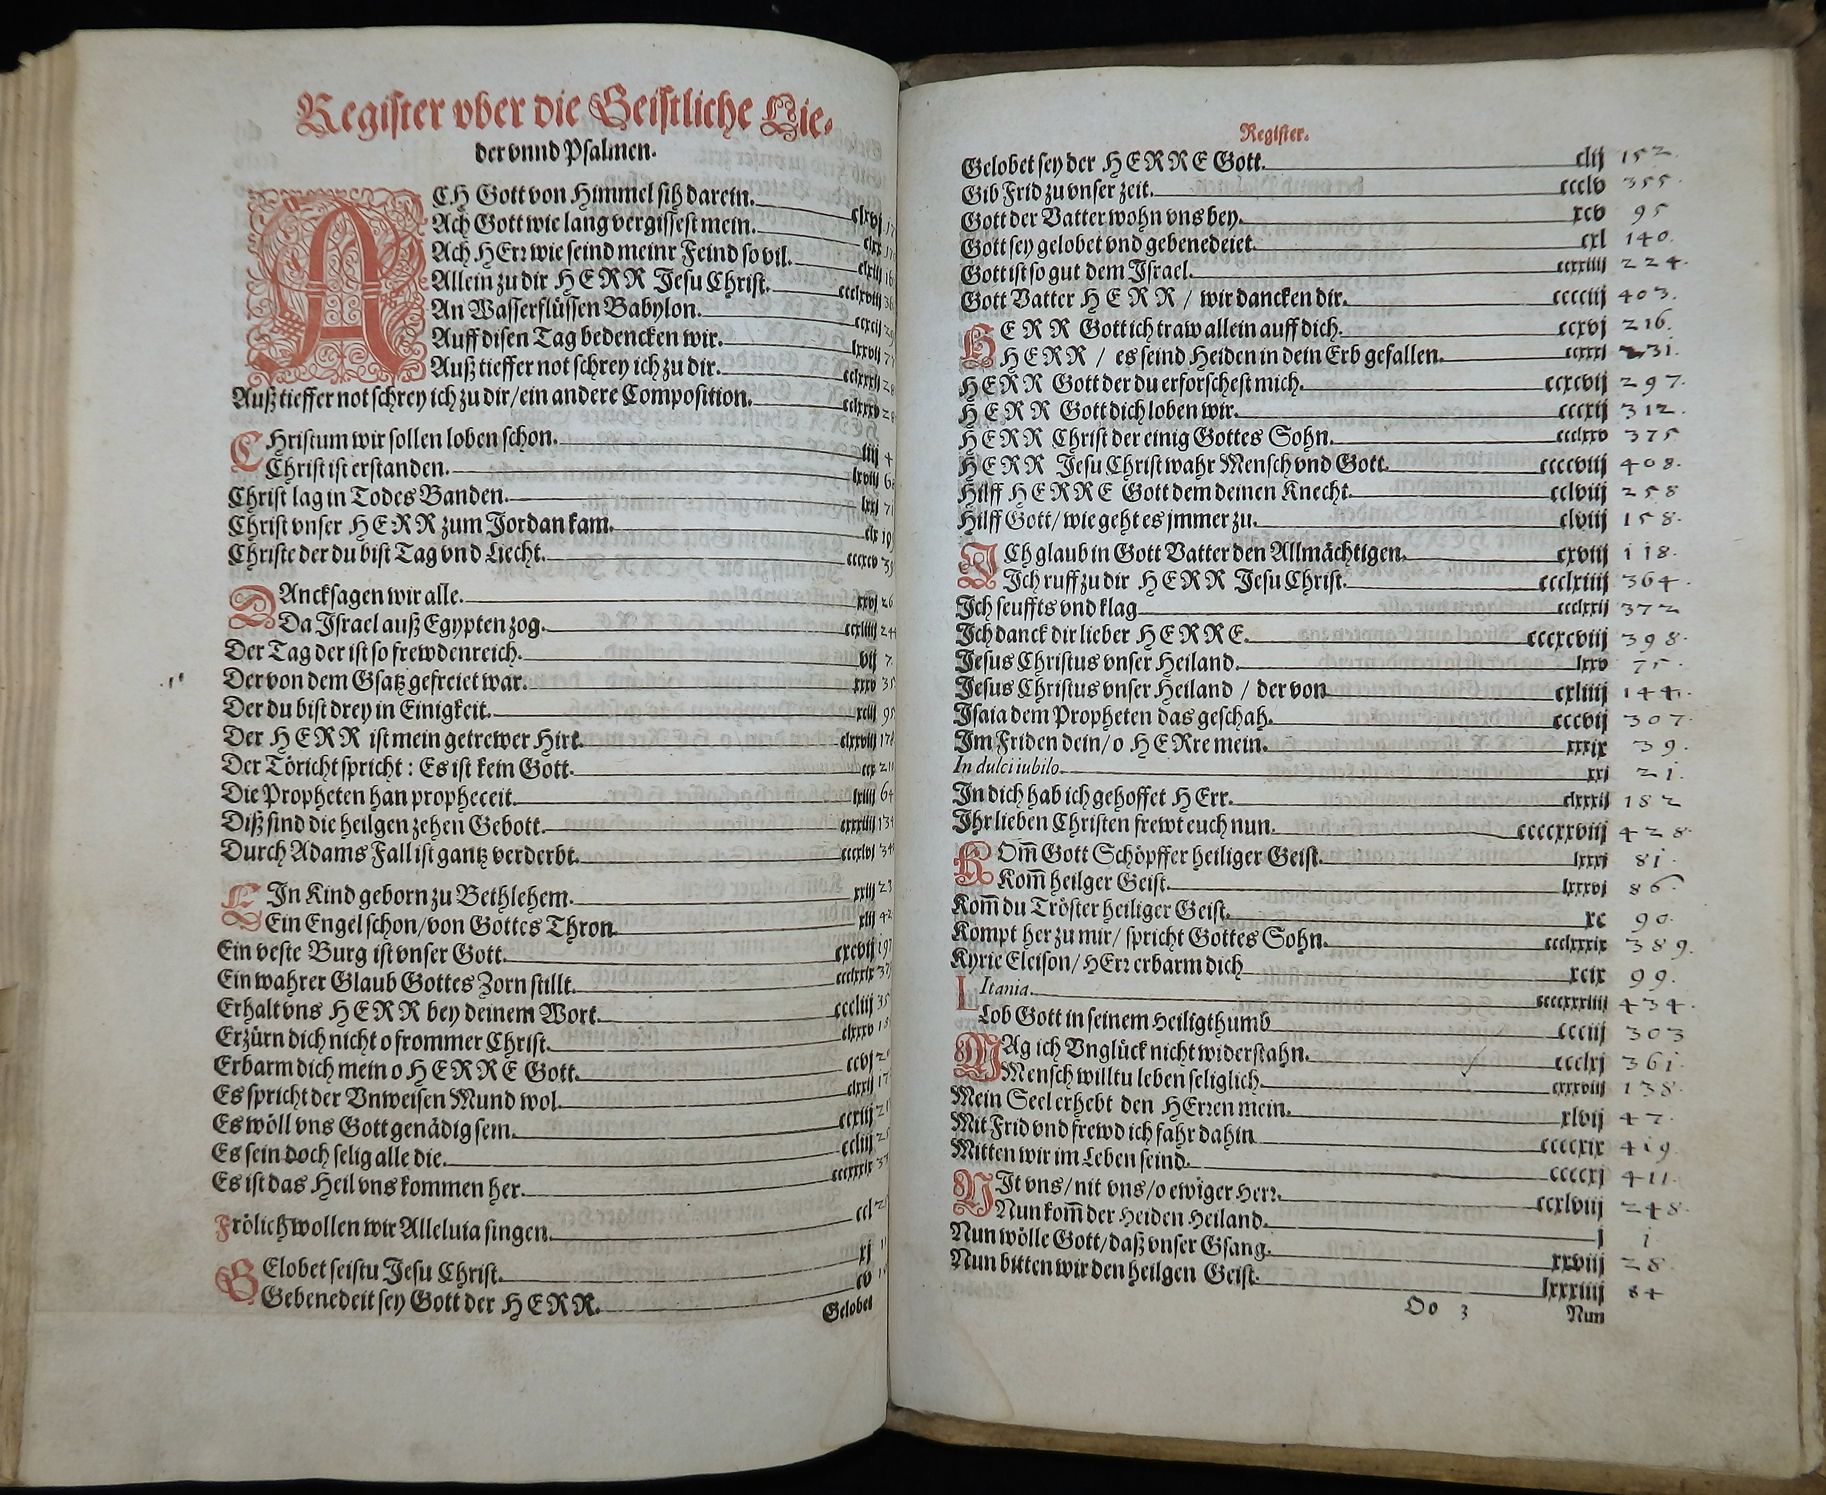 Register vber die Geistliche Lie-
der vnnd Psalmen.
ACH Gott von Himmel sih darein. clxvj
Ach Gott wie lang vergissest mein. clxx
Ach HErr wie seind meinr Feind so vil. clxiij
Allein zu dir HERR Jesu Christ. ccclxviij
An Wasserflüssen Babylon. ccxcij
Auff disen Tag bedencken wir. lxxvij
Auß tieffer not schrey ich zu dir. cclxxxij
Auß tieffer not schrey ich zu dir/ein andere Composition. cclxxxv
CHristum wir sollen loben schon. iiij 4
Christ ist erstanden. lxviij
Christ lag in Todes Banden. lxxj
Christ vnser HERR zum Jordan kam. clx
Christe der du bist Tag vnd Liecht. cccxcv
DAncksagen wir alle. xxvj 26
Da Israel auß Egypten zog. ccxliiij
Der Tag der ist so frewdenreich. vij 7
Der von dem Gsatz gefreiet war. xxxv 35
Der du bist drey in Einigkeit. xciij
Der HERR ist mein getrewer Hirt. clxxviij 178
Der Töricht spricht: Es ist kein Gott. ccx
Die Propheten han propheceit. lxiiij 64
Diß sind die heilgen zehen Gebott. cxxxiiij 134
Durch Adams Fall ist gantz verderbt. cccxlvj
EIn Kind geborn zu Bethlehem. xxiij 23
Ein Engel schon/von Gottes Thron. xlij 42
Ein veste Burg ist vnser Gott. cxcvij 197
Ein wahrer Glaub Gottes Zorn stillt. ccclxxix
Erhalt vns HERR bey deinem Wort. cccliij
Erzürn dich nicht o frommer Christ. clxxxv
Erbarm dich mein o HERRE Gott. ccvj
Es spricht der Vnweisen Mund wol. clxxij
Es wöll vns Gott genädig sein. ccxiij
Es sein doch selig alle die. ccliij
Es ist das Heil vns kommen her. cccxxxix
Frölich wollen wir Alleluia singen. ccl
GElobet seistu Jesu Christ. xj
Gebenedeit sey Gott der HERR. cv
Gelobet
Register.
Gelobet sey der HERRE Gott. clij 152.
Gib Frid zu vnser zeit. ccclv 355.
Gott der Vatter wohn vns bey. xcv 95
Gott sey gelobet vnd gebenedeiet. cxl 140.
Gott ist so gut dem Israel. ccxxiiij 224.
Gott Vatter HERR / wir dancken dir. cccciij 403.
HERR Gott ich traw allein auff dich. ccxvj 216.
HERR / es seind Heiden in dein Erb gefallen. ccxxxj 231.
HERR Gott der du erforschest mich. ccxcvij 297.
HERR Gott dich loben wir. cccxij 312.
HERR Christ der einig Gottes Sohn. ccclxxv 375
HERR Jesu Christ wahr Mensch vnd Gott. ccccviij 408.
Hilff HERRE Gott dem deinen Knecht. cclviij 258
Hilff Gott/ wie geht es jmmer zu. clviij 158.
ICh glaub in Gott Vatter den Allmächtigen. cxviij 118.
Ich ruff zu dir HERR Jesu Christ. ccclxiiij 364.
Ich seuffts vnd klag ccclxxij 372
Ich danck dir lieber HERRE. cccxcviij 398.
Jesus Christus vnser Heiland. lxxv 75.
Jesus Christus vnser Heiland / der von cxliiij 144.
Isaia dem Propheten das geschah. cccvij 307.
Im Friden dein/ o HERre mein. xxxix 39.
In dulci iubilo. xxj 21.
In dich hab ich gehoffet HErr. clxxxij 182
Ihr lieben Christen frewt euch nun. ccccxxviij 428.
KOm̃ Gott Schöpffer heiliger Geist. lxxxj 81.
Kom̃ heilger Geist. lxxxvj 86.
Kom̃ du Tröster heiliger Geist. xc 90.
Kompt her zu mir/ spricht Gottes Sohn. ccclxxxix 389.
Kyrie Eleison/ HErr erbarm dich xcix 99.
LItania. ccccxxxiiij 434.
Lob Gott in seinem Heiligthumb ccciij 303
MAg ich Vnglück nicht widerstahn. ccclxj 361.
Mensch willtu leben seliglich. cxxxviij 138.
Mein Seel erhebt den HErren mein. xlvij 47.
Mit Frid vnd frewd ich fahr dahin ccccxix 419
Mitten wir im Leben seind. ccccxj 411.
NIt vns/ nit vns/ o ewiger Herr. ccxlviij 248.
Nun kom̃ der Heiden Heiland. j 1
Nun wölle Gott/ daß vnser Gsang. xxviij 28.
Nun bitten wir den heilgen Geist. lxxxiiij 84
Oo 3 Nun